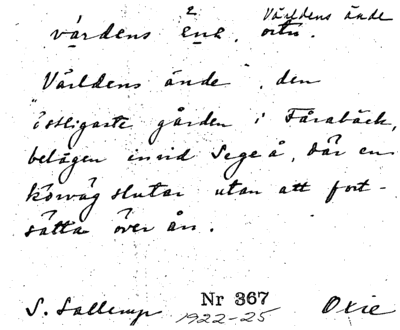 Världens ände
2
várdens ene, ortn.
"Världens ände", den
östligaste gården i Fårabäck,
belägen invid Sege å, där en
körväg slutar utan att fort-
sätta över ån.
S. Sallerup Nr 367 Oxie
1922-25